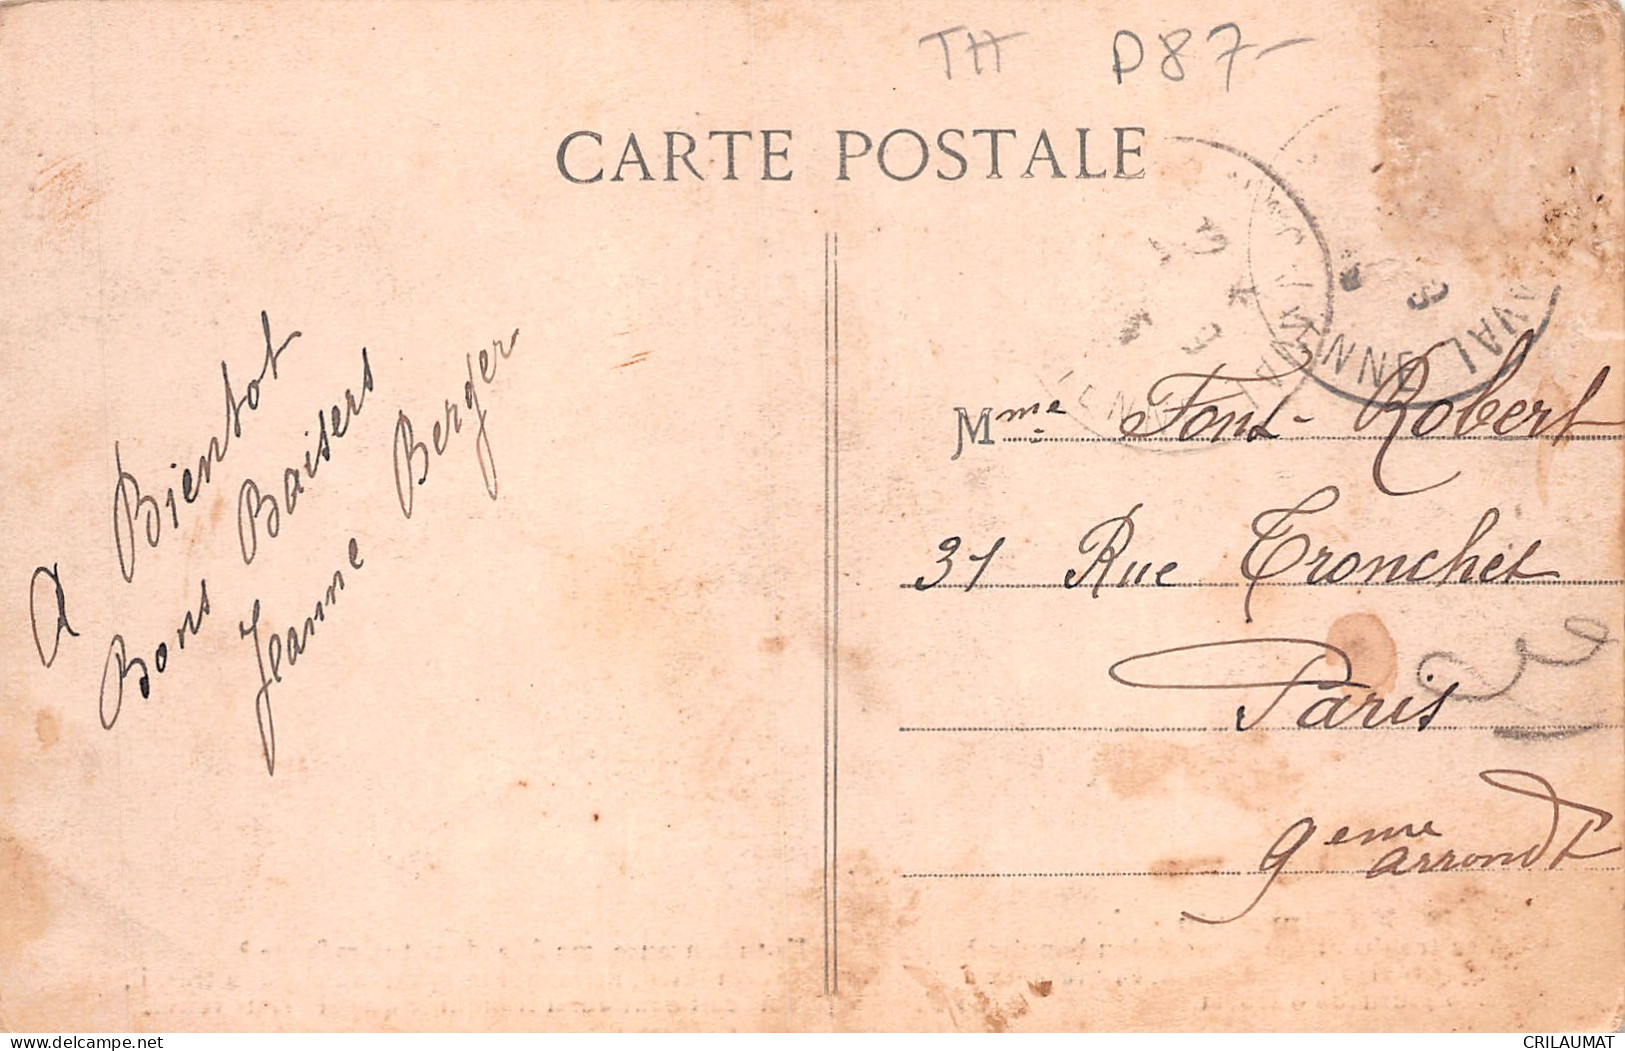 TH D87-
CARTE POSTALE
A Bientot
Bons Baisers
Jeanne Berger
Mme Font-Robert
31 Rue Tronchet
Paris
9eme arrondt
www.delcampe.net
CRILAUMAT